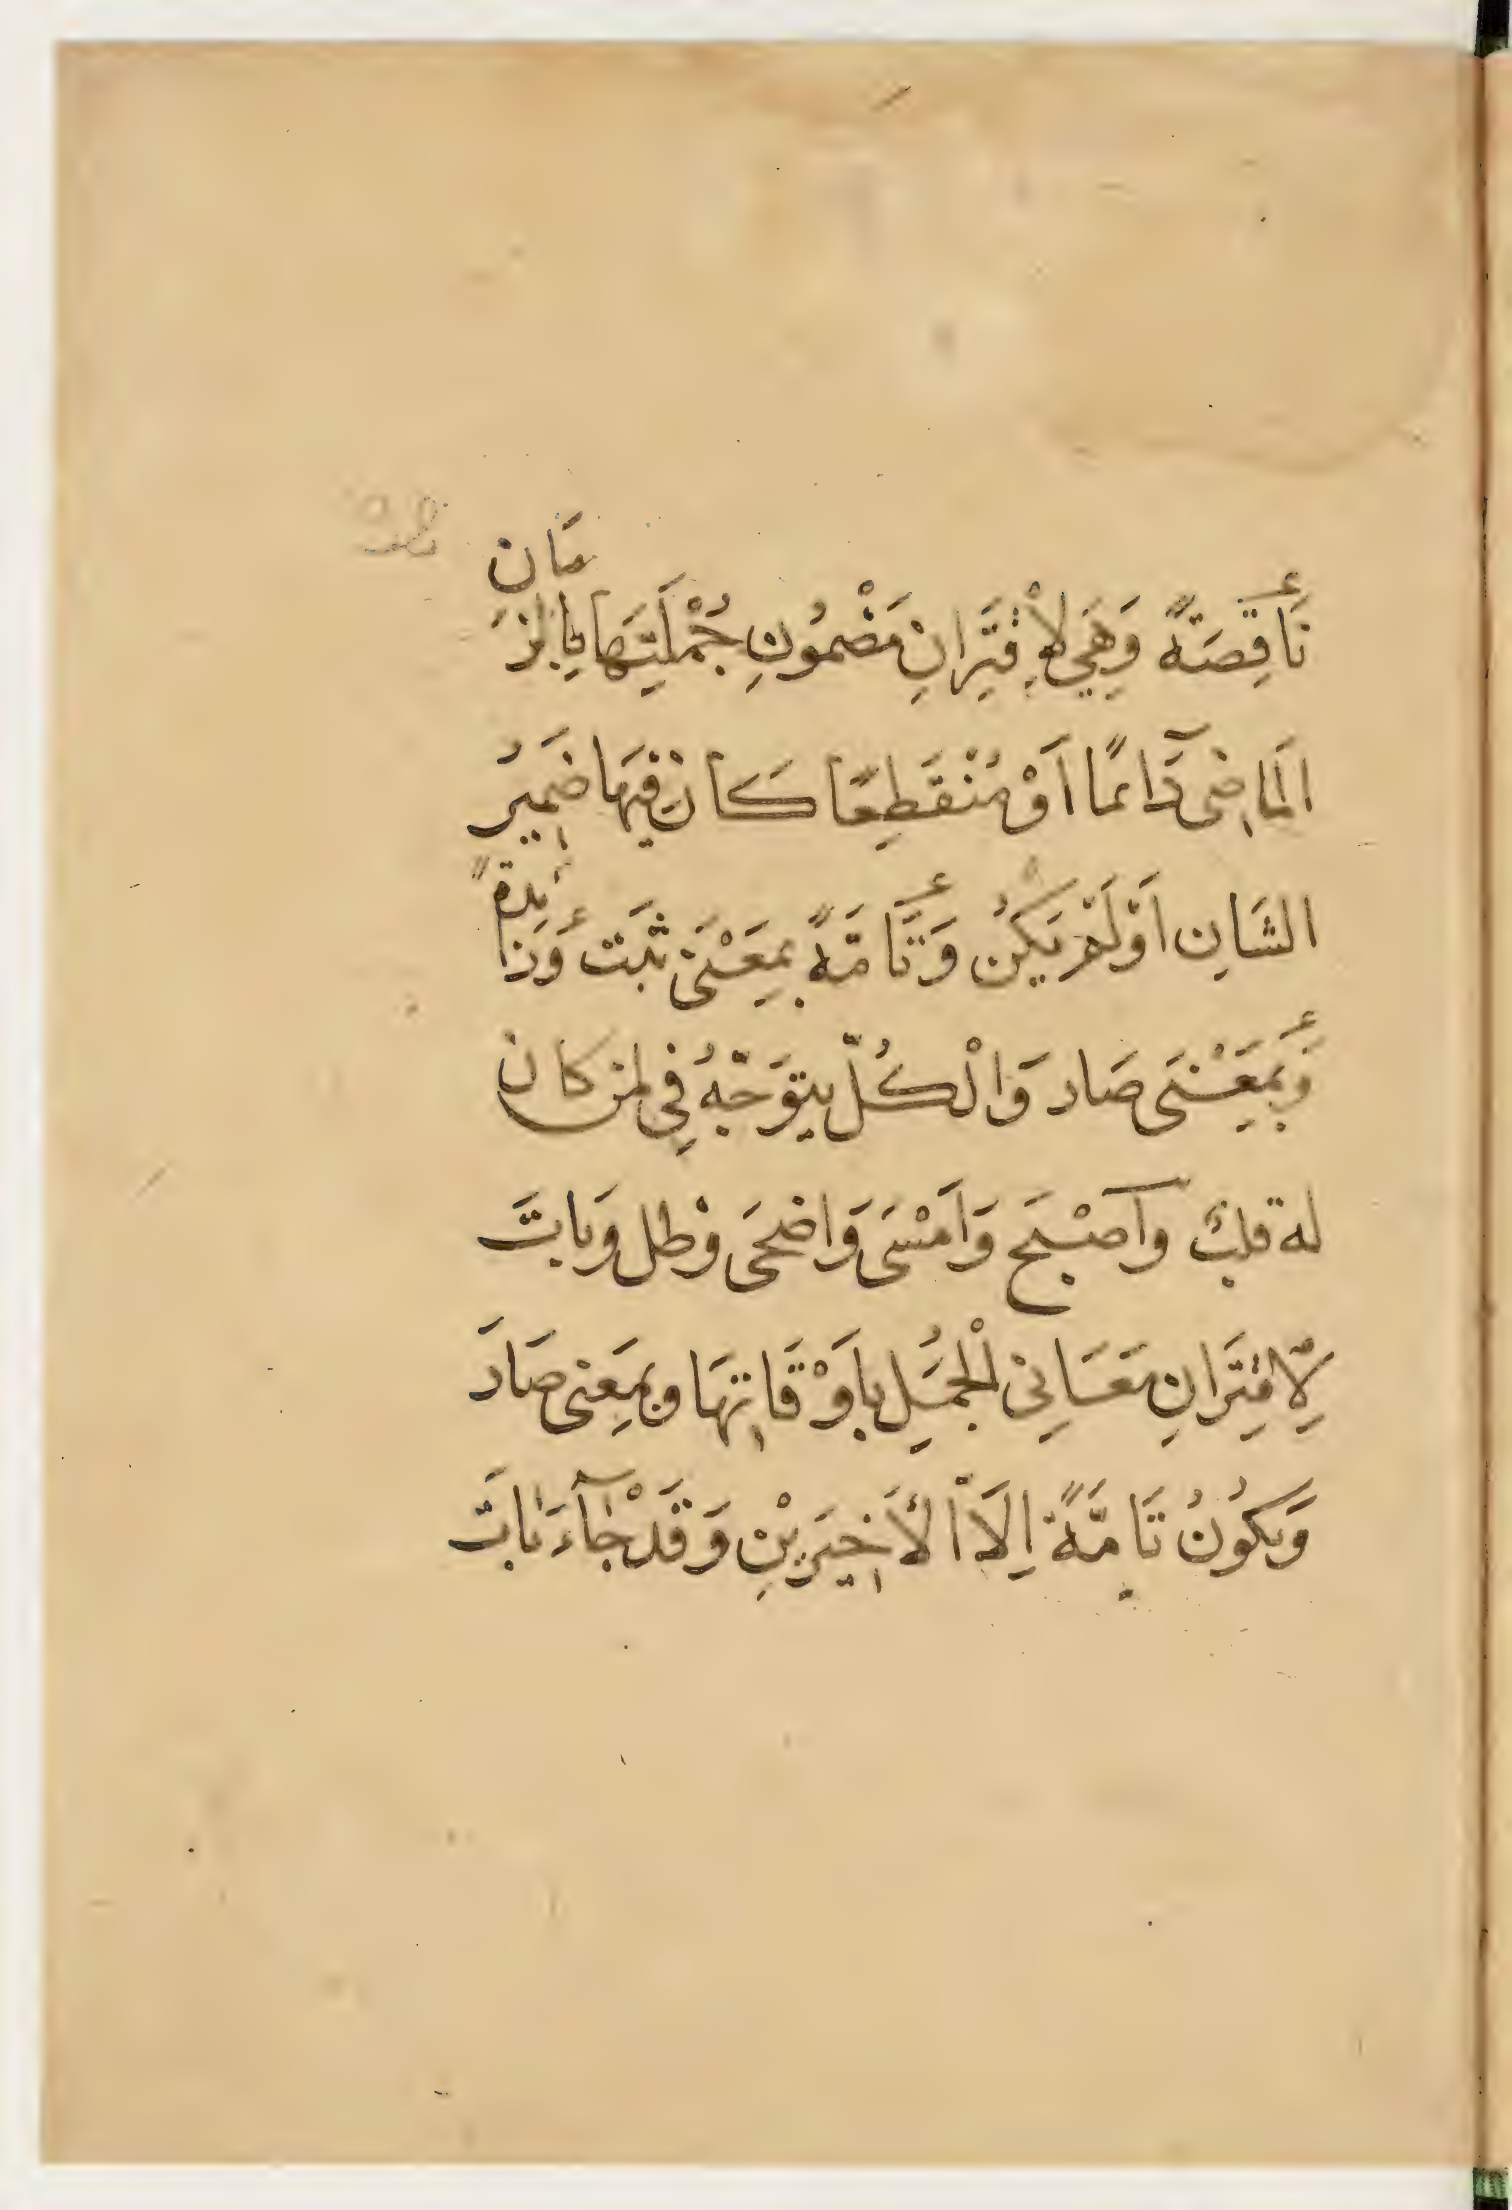 نَاقِصَةً وَهِيَ لِاْقْتِرَانِ مَضْمُونِ جُمْلَتِهَا بِالزَّمَانِ
الْمَاضِى دَآئمًا اَوْ مُنْقَطِعًا كَانَ فِيهَا ضَمِيرُ
الشَانِ اَوْ لَمْ يَكُنْ وَتَامَّةً بِمَعْنَى ثَبَتَ وَزَائِدَةً
وَبِمَعْنَى صَار وَالْكُلّ يتوَجّهُ فِى لمن كان
له قلبٌ وآصْبَح وَاَمْسَى وَاضحَى وظل وَبَاتَ
لِاقْتِرَانِ مَعَانِى الْجُمَلِ بِاَوْقَاتِهَا وبمَعِنى صَارَ
وَيكُونُ تَامَّةً اِلاَّ الْأَخِيرَيْنِ وَقَدْ جَآءَ بَاتَ